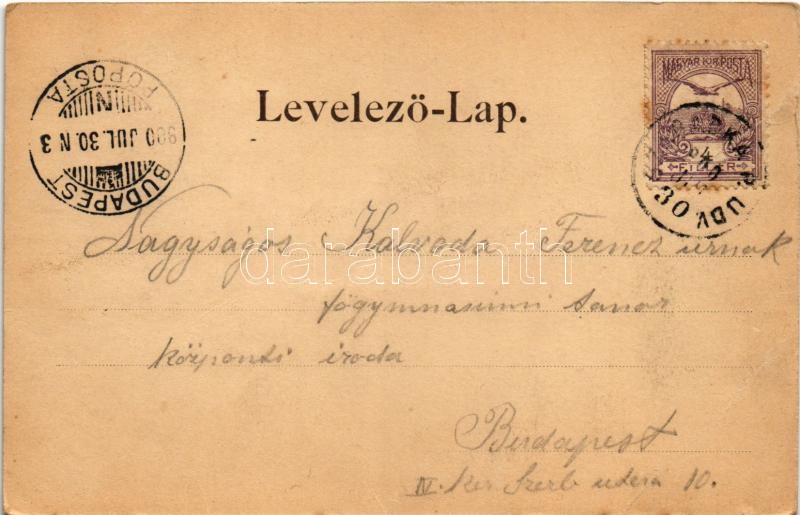 Levelező-Lap.
MAGYAR KIR. POSTA
FILLÉR
BUDAPEST
900 JUL. 30. N 3
FŐPOSTA
N
UDV
30
Nagyságos Kalvoda Ferencz úrnak
főgymnasiumi tanár
központi iroda
Budapest
IV. ker Szerb utcza 10.
darabanth